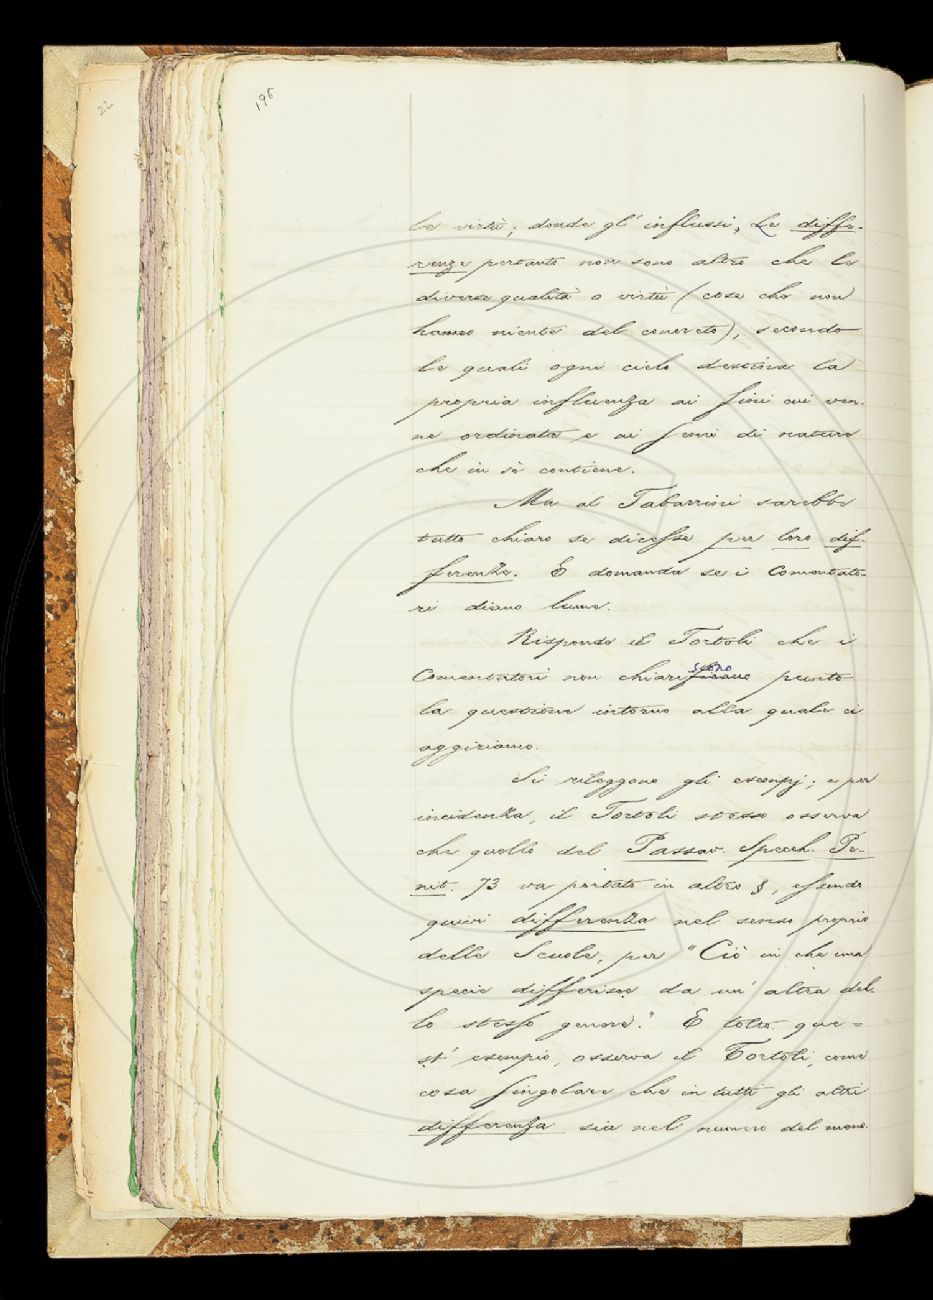 22
196
le virtù; donde gl'influssi, Le diffe-
renze pertanto non sono altro che le
diverse qualità o virtù (cose che non
hanno niente del concreto), secondo
le quali ogni cielo destina la
propria influenza ai fini cui ven-
ne ordinato e ai semi di natura
che in sè contiene.
Ma al Tabarrini sarebbe
tutto chiaro se dicesse per loro dif-
ferenze. E domanda se i Comentato-
ri diano lume.
Risponde il Tortoli che i
Comentatori non chiariscono punto
la questione intorno alla quale ci
aggiriamo.
Si rileggono gli esempj; e per
incidenza, il Tortoli stesso osserva
che quello del Passav. Specch. Pe-
nit. 73 va portato in altro §, essendo
quivi differenza nel senso proprio
delle Scuole, per "Ciò in che una
specie differisce da un'altra del-
lo stesso genere." E tolto que=
st'esempio, osserva il Tortoli, come
cosa singolare che in tutti gli altri
differenza sia nel numero del meno.